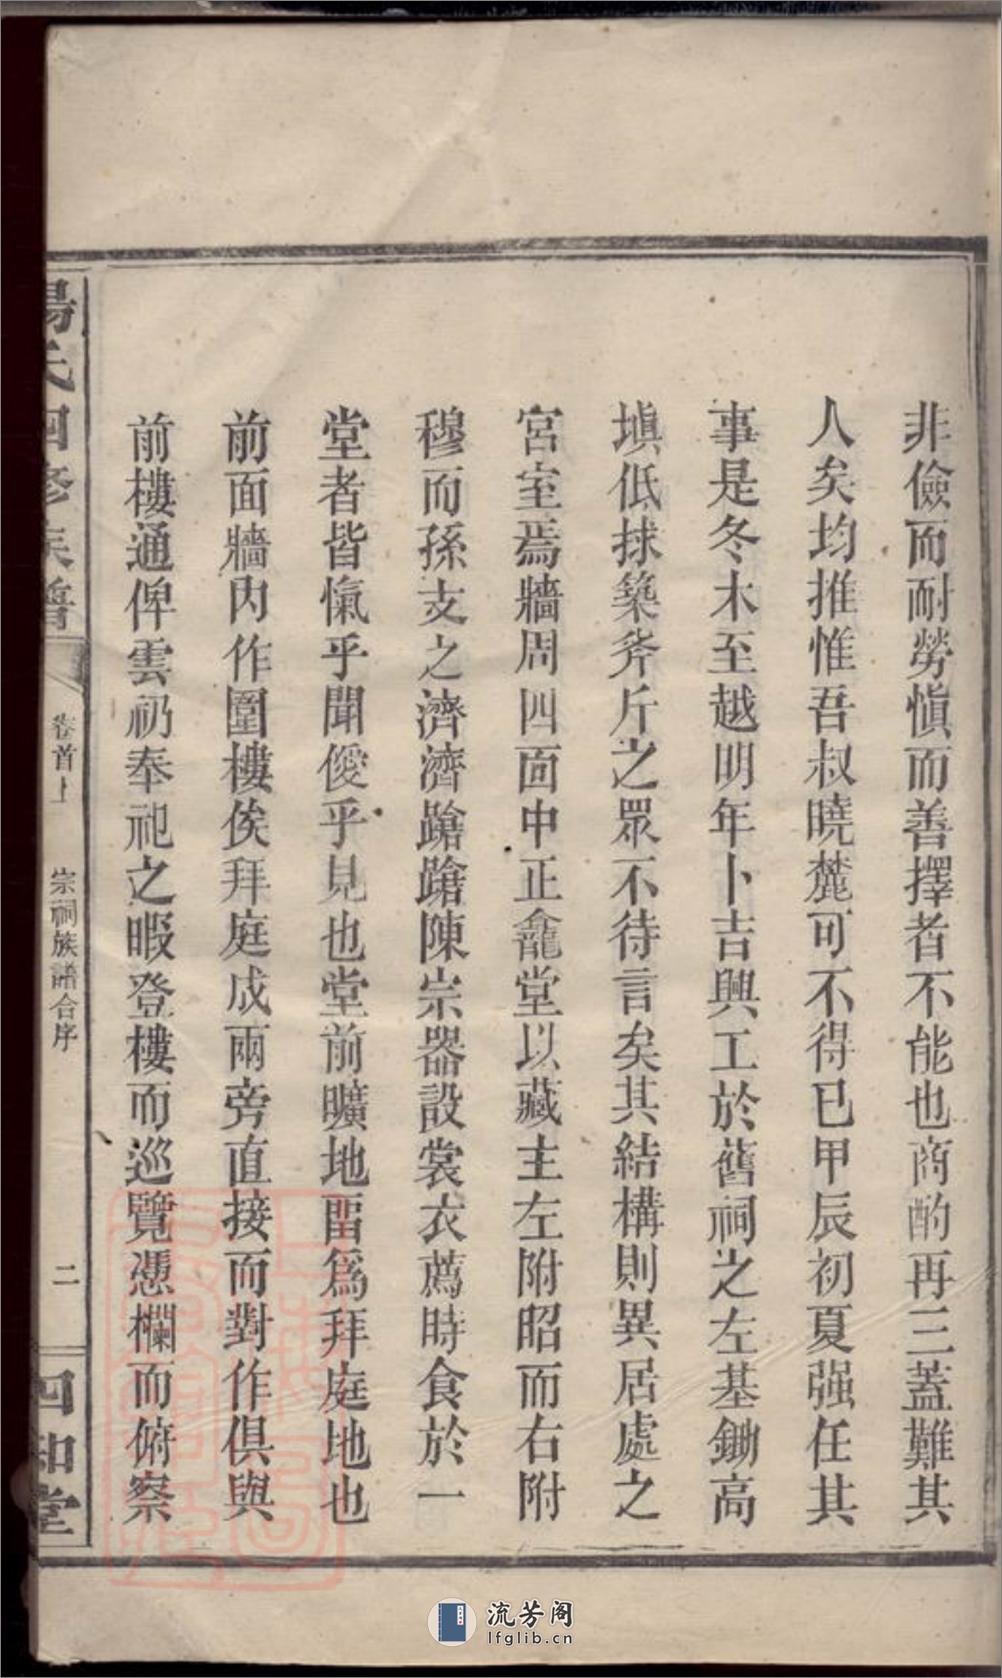 非儉而耐勞慎而善擇者不能也商酌再三蓋難其
人矣均推惟吾叔曉麓可不得已甲辰初夏强任其
事是冬木至越明年卜吉興工於舊祠之左基鋤高
塡低捄築斧斤之眾不待言矣其結構則異居處之
宮室焉牆周四面中正龕堂以藏主左附昭而右附
穆而孫支之濟濟蹌蹌陳宗器設裳衣薦時食於一
堂者皆愾乎聞僾乎見也堂前曠地留爲拜庭地也
前面牆內作圍樓俟拜庭成兩旁直接而對作俱與
前樓通俾雲礽奉祀之暇登樓而巡覽憑欄而俯察
楊氏四修族譜
卷首上
宗祠族譜合序
二
四知堂
流芳阁
lfglib.cn